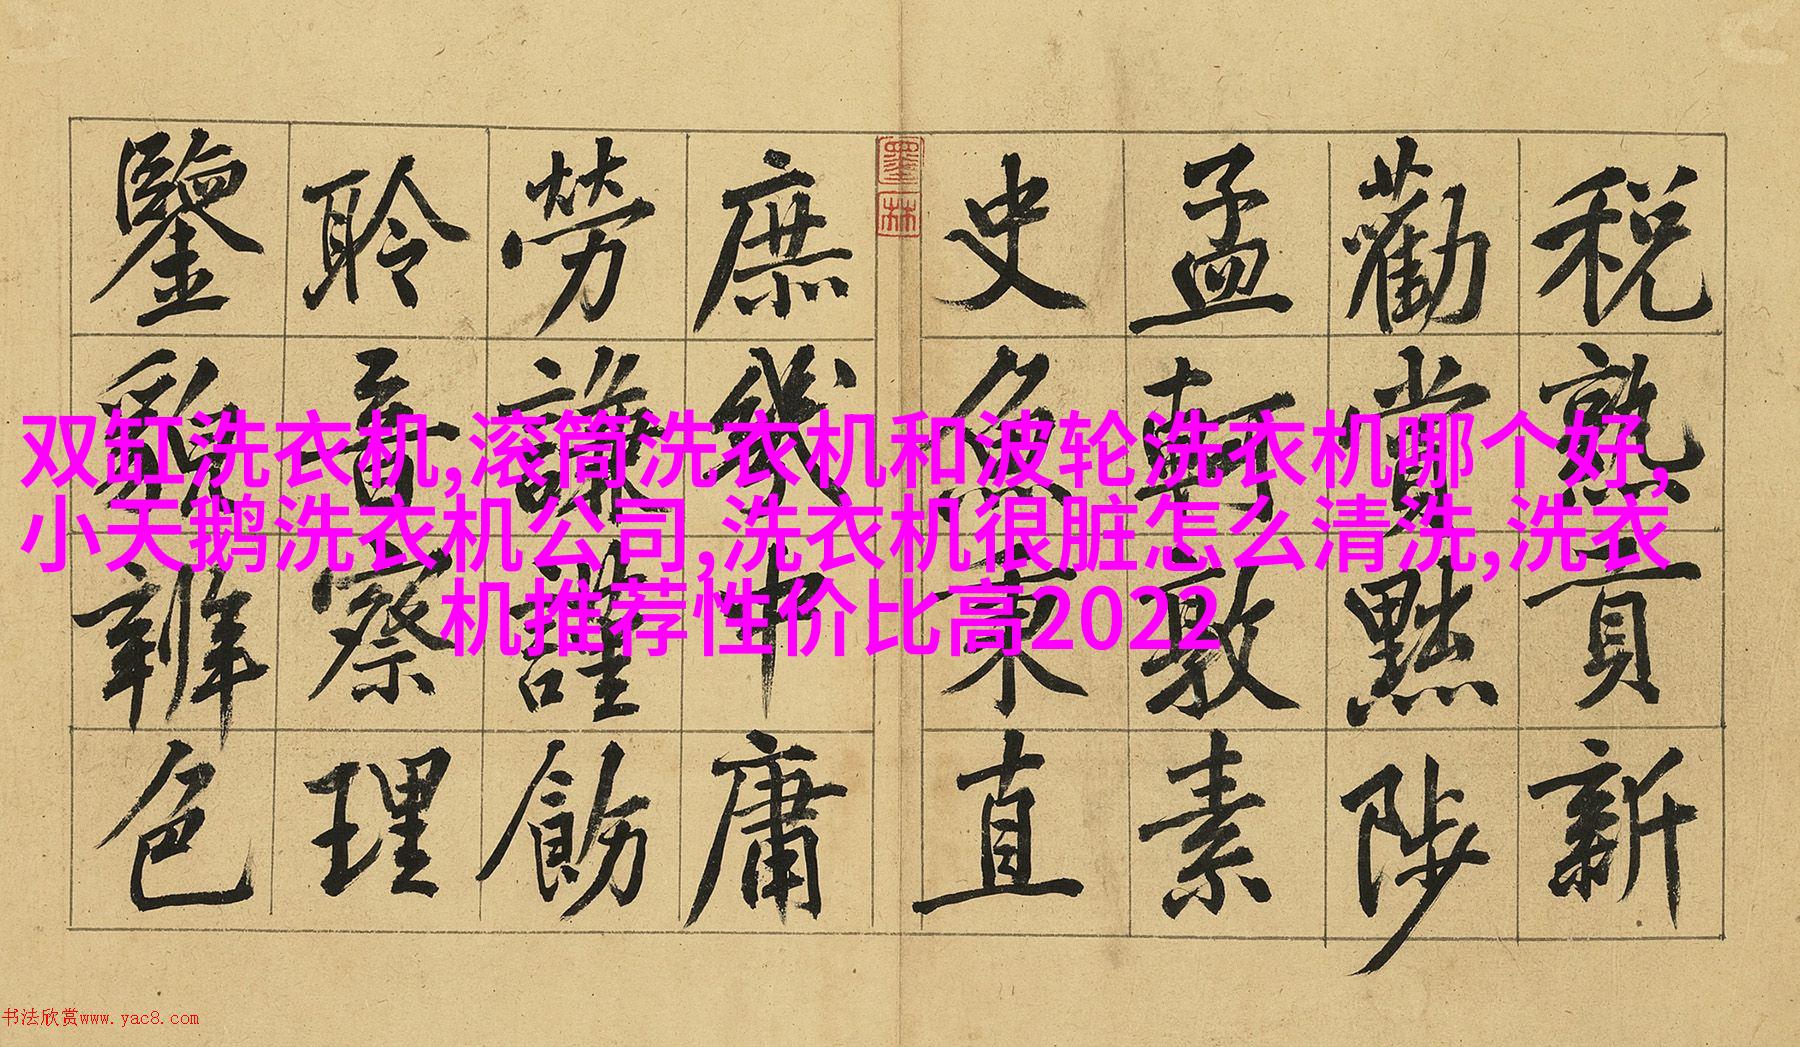 税熟貢新
勸賞黜陟
孟軻敦素
史魚秉直
墨林
庶幾中庸
勞謙謹飭
聆音察理
鑒貌辨色
双缸洗衣机,滚筒洗衣机和波轮洗衣机哪个好,
小天鹅洗衣机公司,洗衣机很脏怎么清洗,洗衣
机推荐性价比高2022
书法欣赏www.yac8.com